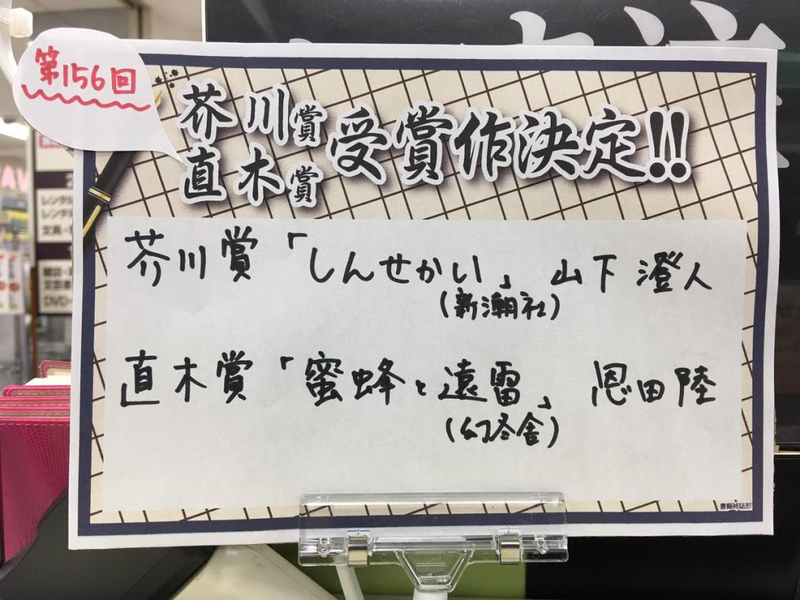 第156回
芥川賞
直木賞
受賞作決定!!
芥川賞「しんせかい」 山下 澄人
(新潮社)
直木賞「蜜蜂と遠雷」 恩田陸
(幻冬舎)
レンタル
レンタル